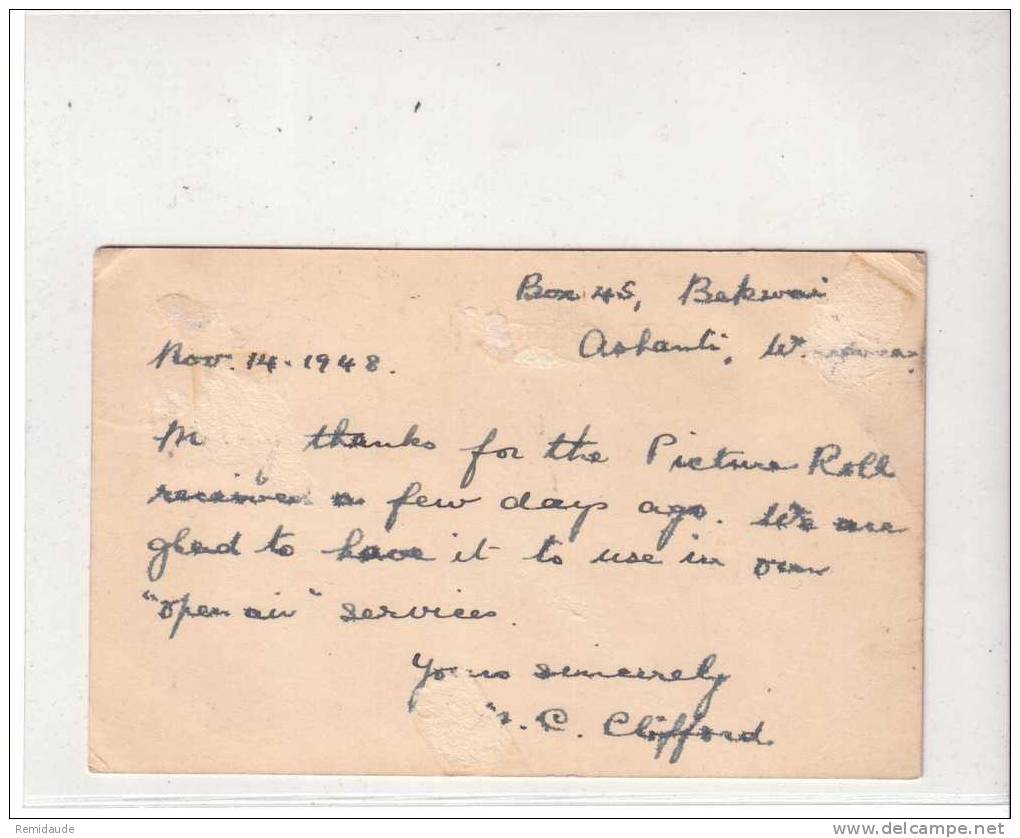 Box 45, Bekwai
Ashanti, W.
Nov. 14. 1948.
M thanks for the Picture Roll
received a few days ago. We are
glad to have it to use in our
"open air" services.
Yours sincerely
. C. Clifford
Remidaude
delcampe.net